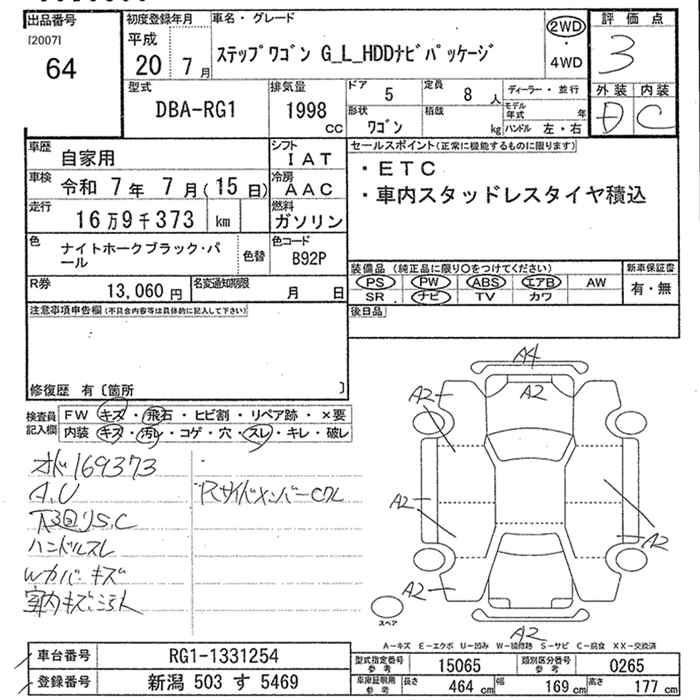 出品番号
[2007]
64
初度登録年月
平成
20 7月
車名・グレード
ステップワゴン G_L_HDDナビパッケージ
2WD
・
4WD
評価点
3
外装 内装
D C
型式
DBA-RG1
排気量
1998
cc
ドア
5
定員
8 人
形状
ワゴン
積載
kg
ディーラー・並行
モデル年式 年
ハンドル 左・右
車歴
自家用
シフト
IAT
車検
令和 7年 7月(15日)
冷房
AAC
走行
16万9千373 km
燃料
ガソリン
色
ナイトホークブラック・パール
色替
色コード
B92P
R券
13,060 円
名変通知期限
月 日
セールスポイント(正常に機能するものに限ります)
・ETC
・車内スタッドレスタイヤ積込
装備品 (純正品に限り○をつけてください)
新車保証書
PS PW ABS エアB AW
有・無
SR ナビ TV カワ
後日品
注意事項申告欄(不具合内容等は具体的に記入して下さい)
修復歴 有〔箇所 〕
検査員記入欄
FW キズ・飛石・ヒビ割・リペア跡・×要
内装 キズ・汚レ・コゲ・穴・スレ・キレ・破レ
オド169373
A.U
ハンドルスレ
Wカバーキズ
室内キズ、コミ大
RサイドメンバーC大
A4
A2
A2
A2
A2
A2
A2
スペア
A-キズ E-エクボ U-凹み W-補修跡 S-サビ C-腐食 XX-交換済
車台番号
RG1-1331254
登録番号
新潟 503 す 5469
型式指定番号
参考
15065
類別区分番号
参考
0265
車庫証明用
参考
長さ
464 cm
幅
169 cm
高さ
177 cm